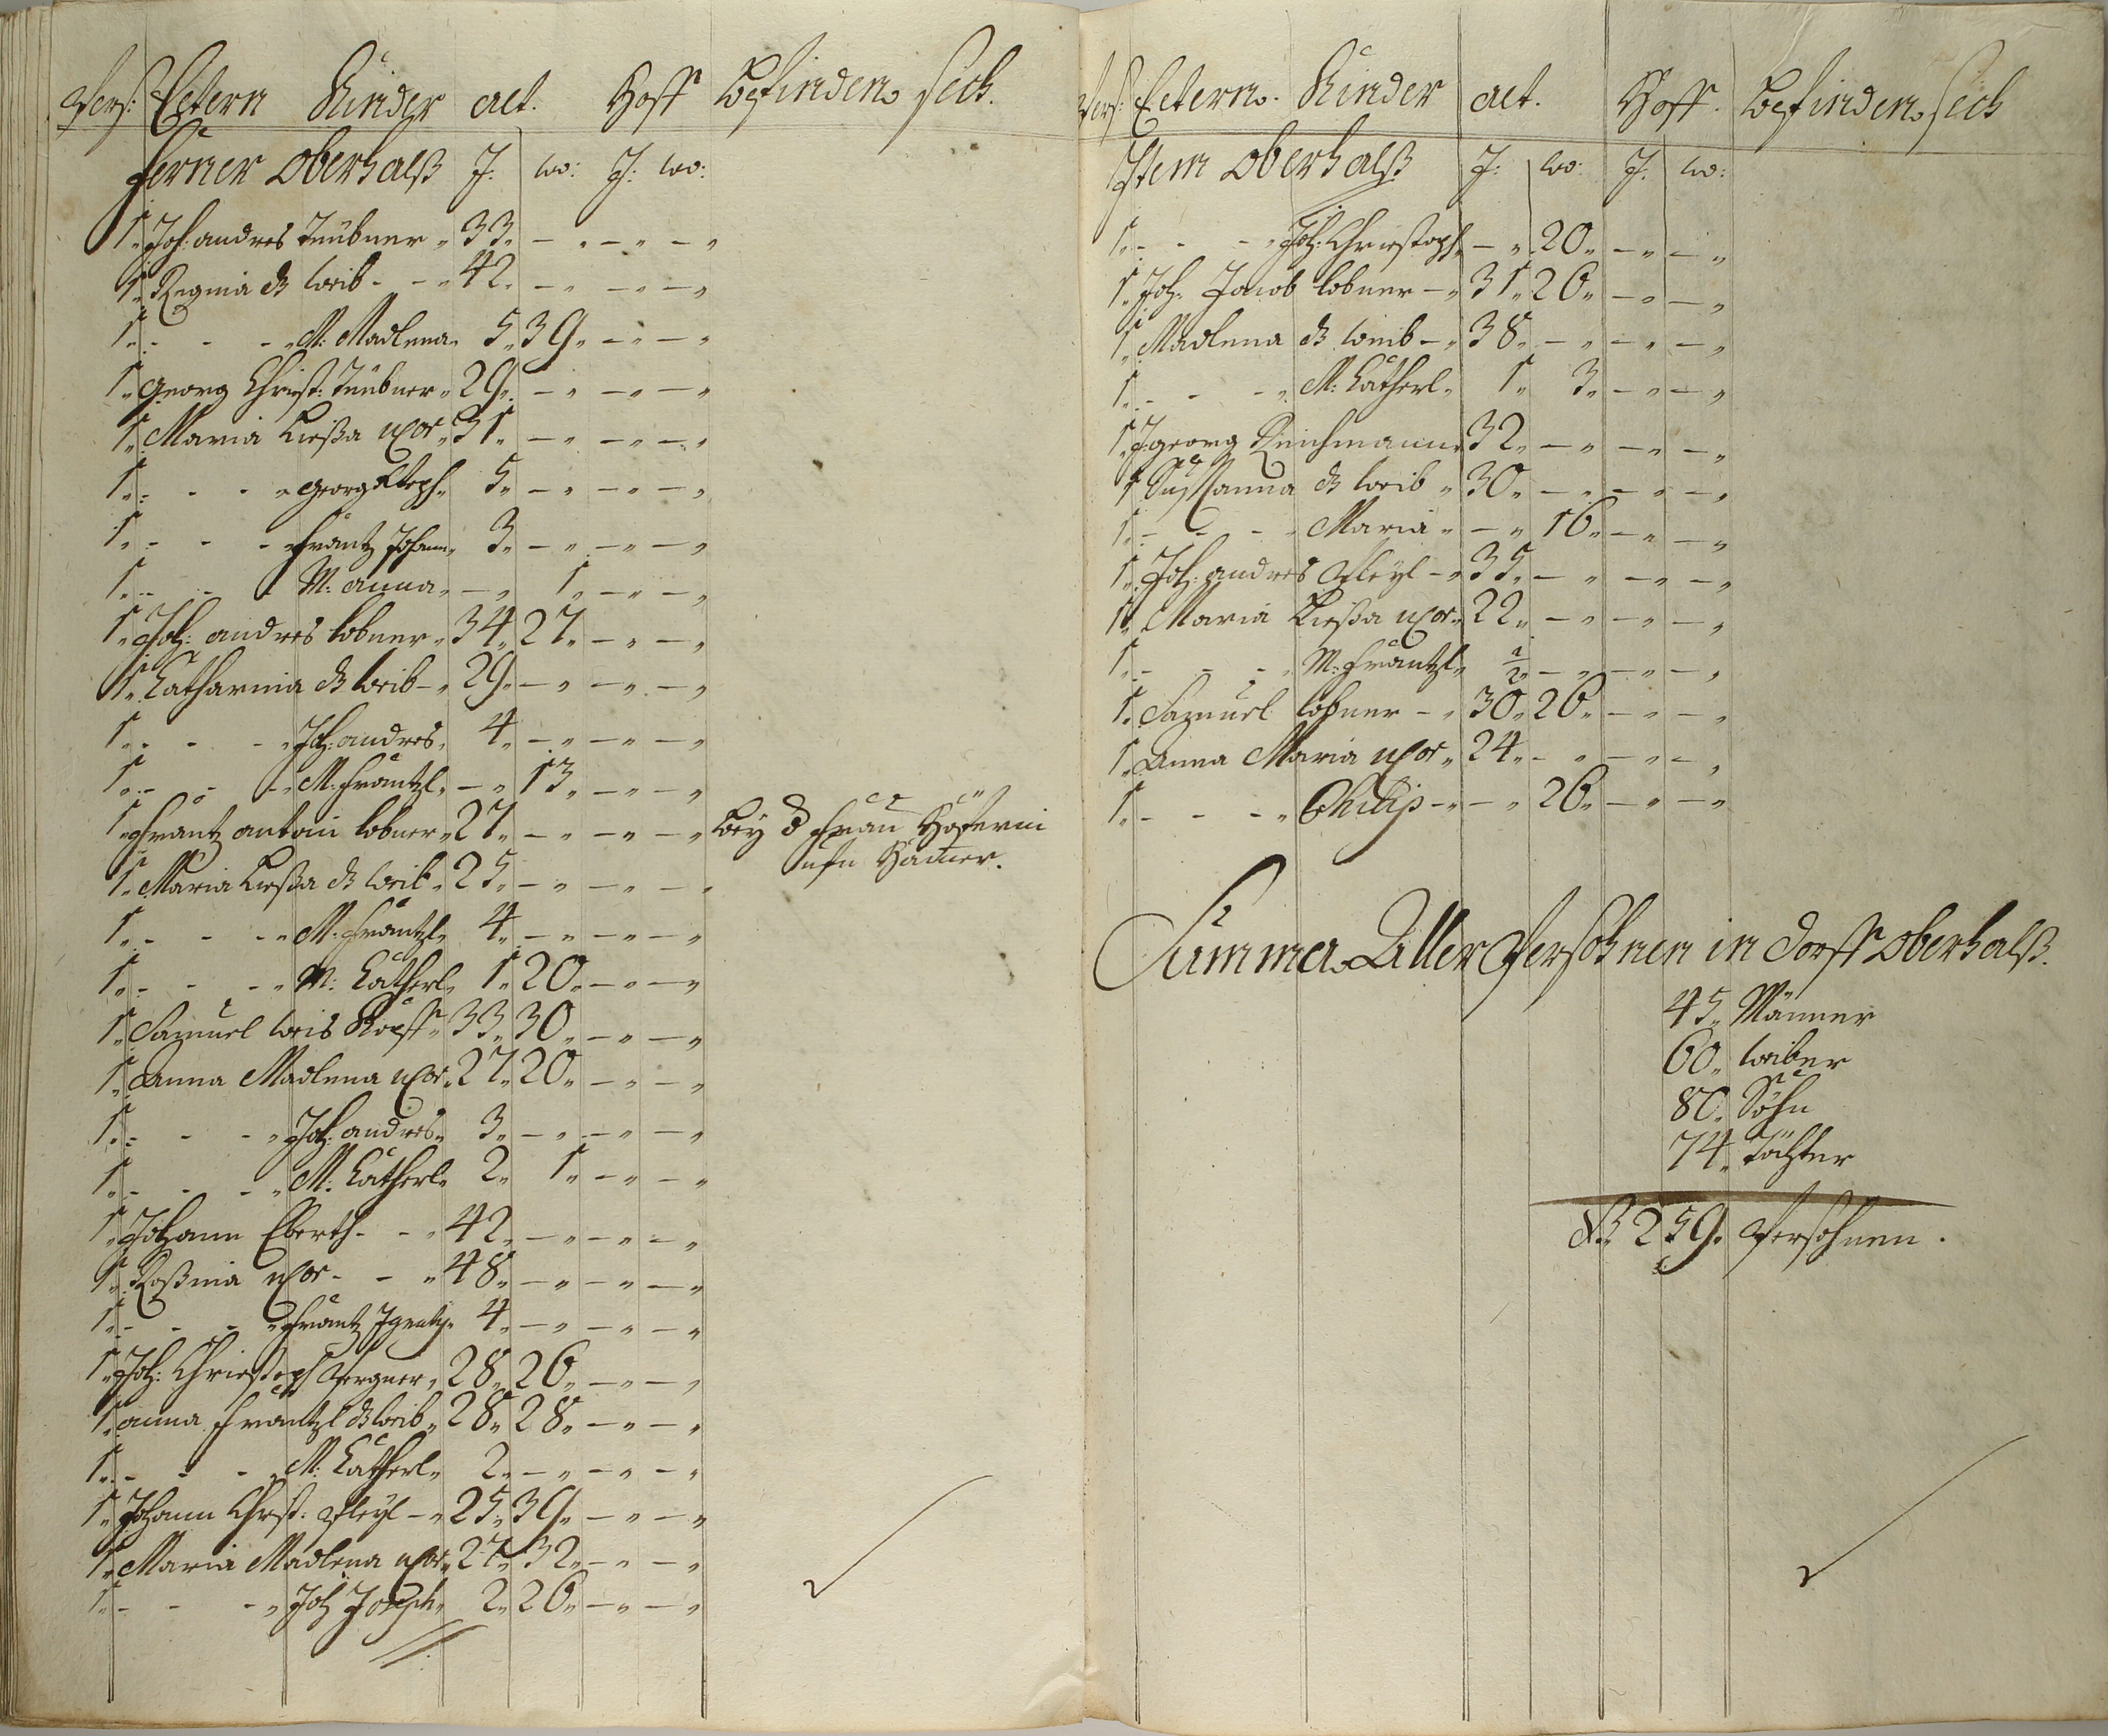 Pers: Eltern Kinder alt. Hoff befinden sich.
ferner Oberhalß J: wo: J: wo:
1. Joh: andres Teübner 33. - - -
1. Regina ds weib - - 42. - - -
1. - - - M: Madlena 5. 39. - -
1. georg Christ: Teübner 29. - - -
1. Maria Ließa uxor 31. - - -
1. - - - georg Steph. 5. - - -
1. - - - Frantz Johann 3. - - -
1. - - - M: anna - 1. - -
1. Joh: andres Lobner 34. 27. - -
1. Catharina ds weib - 29. - - -
1. - - - Joh: andres 4. - - -
1. - - - M. Fräntzl - 13. - -
1. Frantz antoni Lobner 27. - - - beÿ d Frau Höferin
ufn Hamer.
1. Maria Ließa ds weib 25. - - -
1. - - - M. Fräntzl 4. - - -
1. - - - M: Catherl 1. 20. - -
1. Samuel weis Kopff 33. 30. - -
1. Anna Madlena uxor 27. 20. - -
1. - - - Joh: andres 3. - - -
1. - - - M. Catherl 2. 1. - -
1. Johann Eberth - - 42. - - -
1. Roßina uxor - - 48. - - -
1. - - - Frantz Ignatz 4. - - -
1. Joh: Christoph Pergner 28. 26. - -
1. anna Fräntzl ds weib 28. 28. - -
1. - - - M: Catherl 2. - - -
1. Johann Christ: Pleÿl - 25. 39. - -
1. Maria Madlena uxor 27. 32. - -
1. - - - Joh Joseph 2. 26. - -
Pers: Eltern. Kinder alt. Hoff. befinden sich
Item Oberhalß J: wo: J: wo:
1. - - - Joh: Christoph - 20. - -
1. Joh: Jacob Lobner - 31. 26. - -
1. Madlena ds weib - 38. - - -
1. - - - M: Catherl 1. 3. - -
1. J: georg Reichmann 32. - - -
1. Susanna ds weib 30. - - -
1. - - - Maria - 16. - -
1. Joh: andres Pleÿl - 35. - - -
1. Maria Ließa uxor 22. - - -
1. - - - M: Fräntzl 1/2 - - -
1. Samuel Lobner - 30. 26. - -
1. Anna Maria uxor 24. - - -
1. - - - Philip - - 26. - -
Summa Aller Persohnen in dorff Oberhalß.
45. Männer
60. weiber
80. Söhn
74. Töchter
259. Persohnen.